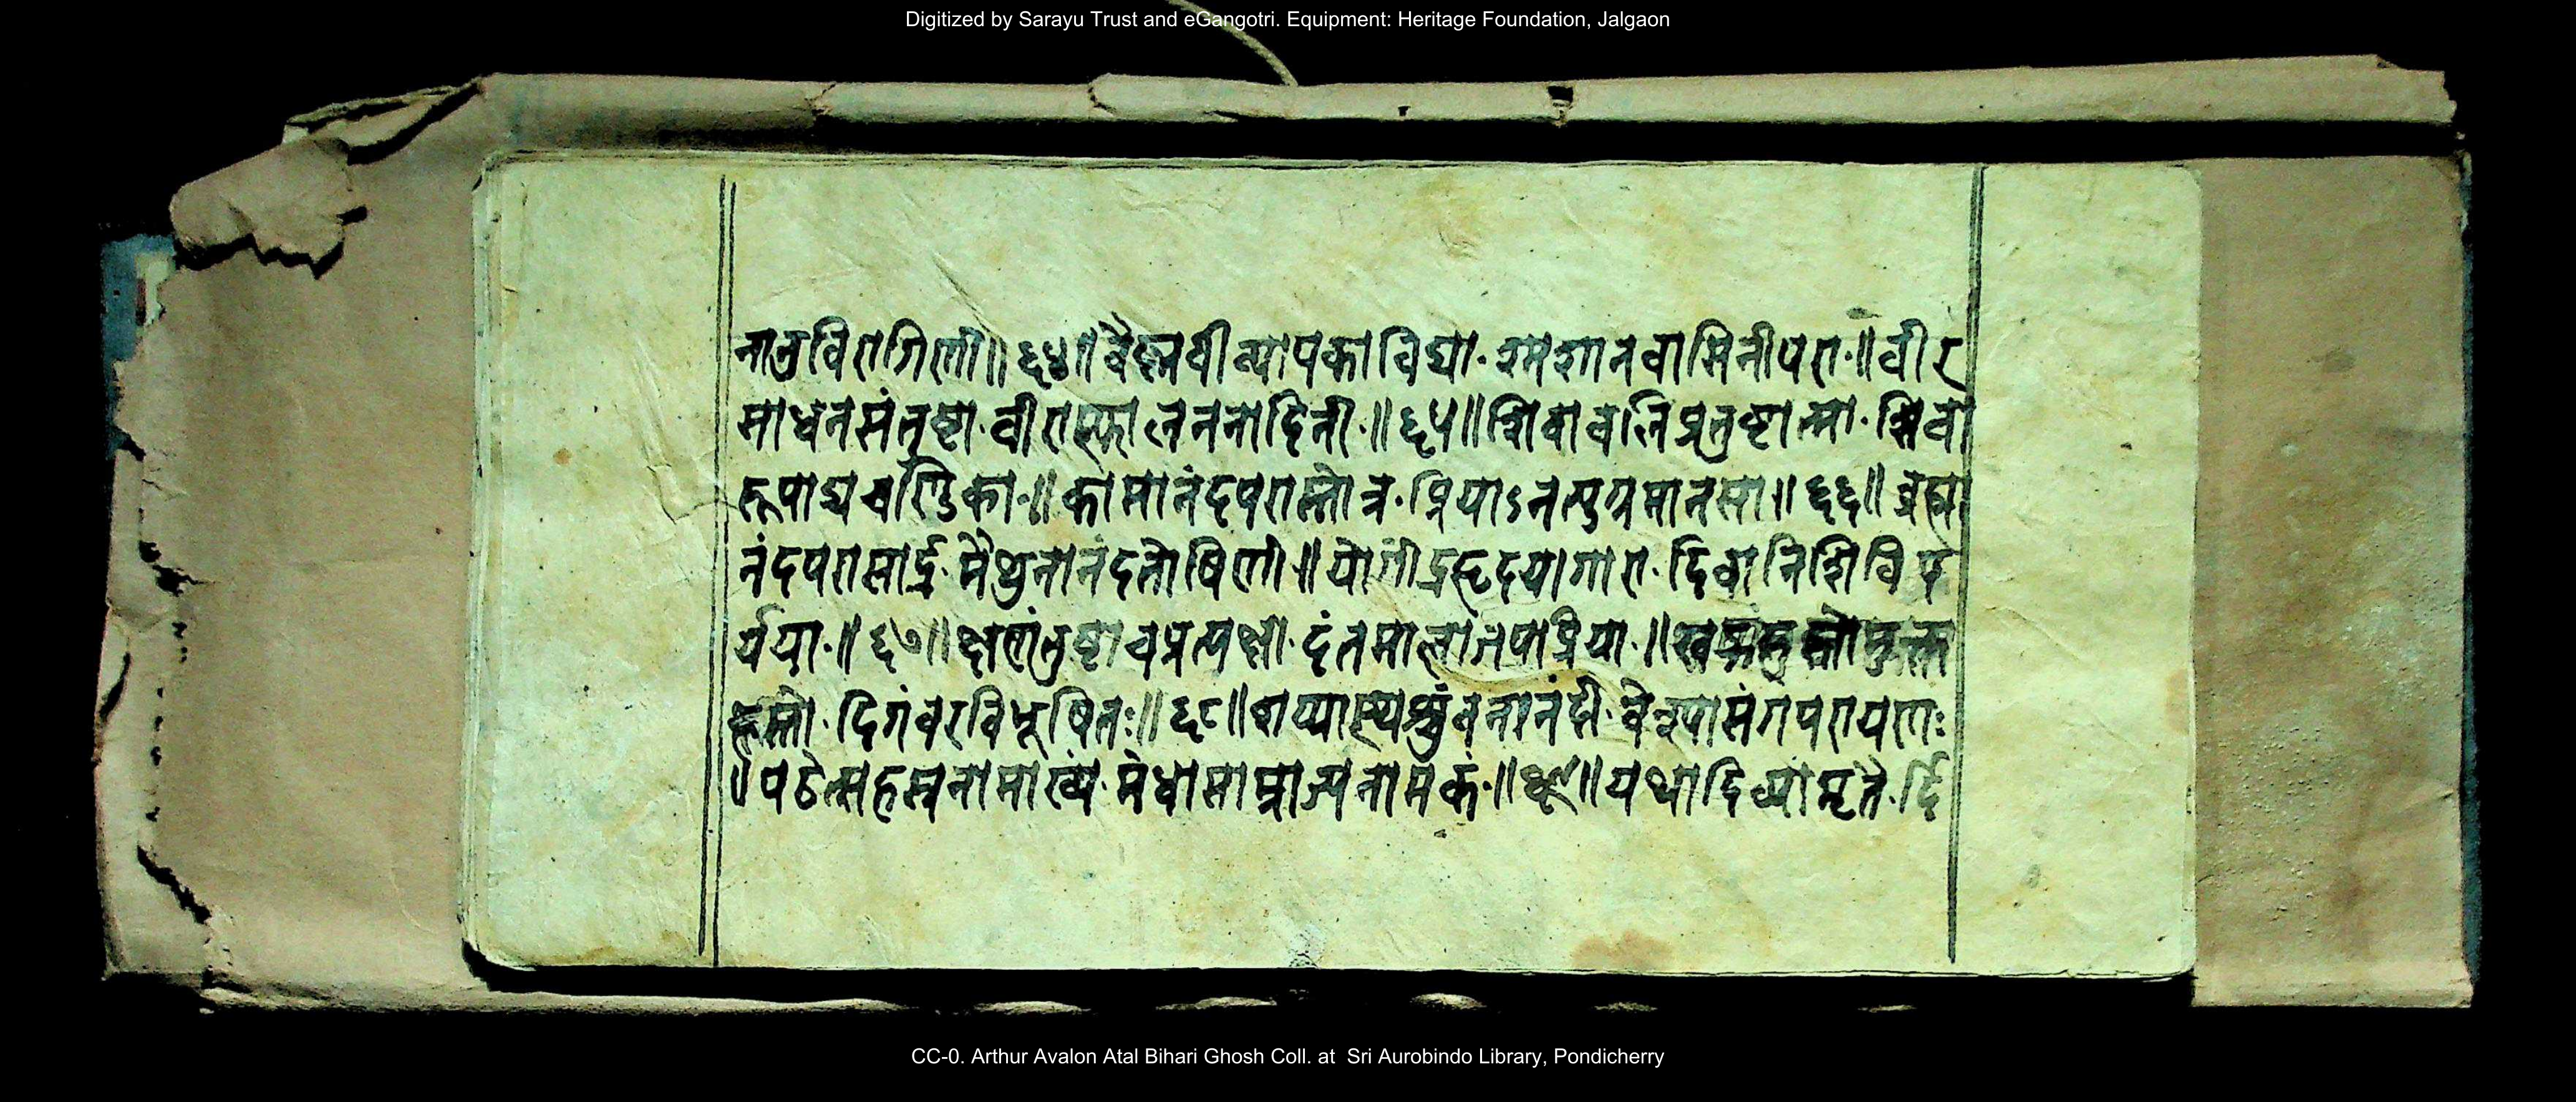 Digitized by Sarayu Trust and eGangotri. Equipment: Heritage Foundation, Jalgaon
नानुविरागिणी॥ ६४॥ वैष्णवी व्यापका विद्या· श्मशानवासिनी परा·॥ वीर
साधनसंतुष्टा· वीरास्फालननादिनी·॥ ६५॥ शिवावलिप्रतुष्टात्मा· शिवा
रूपाद्यचण्डिका·॥ कामानंदपरास्तोत्र· प्रियाऽनत्पुग्रमानसा॥ ६६॥ ब्रह्मा
नंदपरासार्द्र· मैथुनानंदतोषिणी·॥ योगींद्रहृदयागारा· दिवानिशिविप
र्यया·॥ ६७॥ क्षणंतुष्टाचप्रत्यक्षा· दंतमालांजपाप्रिया·॥
दिगंवरविभूषितः॥ ६८॥
॥पठेत्सहस्रनामाख्यं· मेधासाम्राज्यनामकं·॥ यथादिव्यामृतै·र्दि
CC-0. Arthur Avalon Atal Bihari Ghosh Coll. at Sri Aurobindo Library, Pondicherry